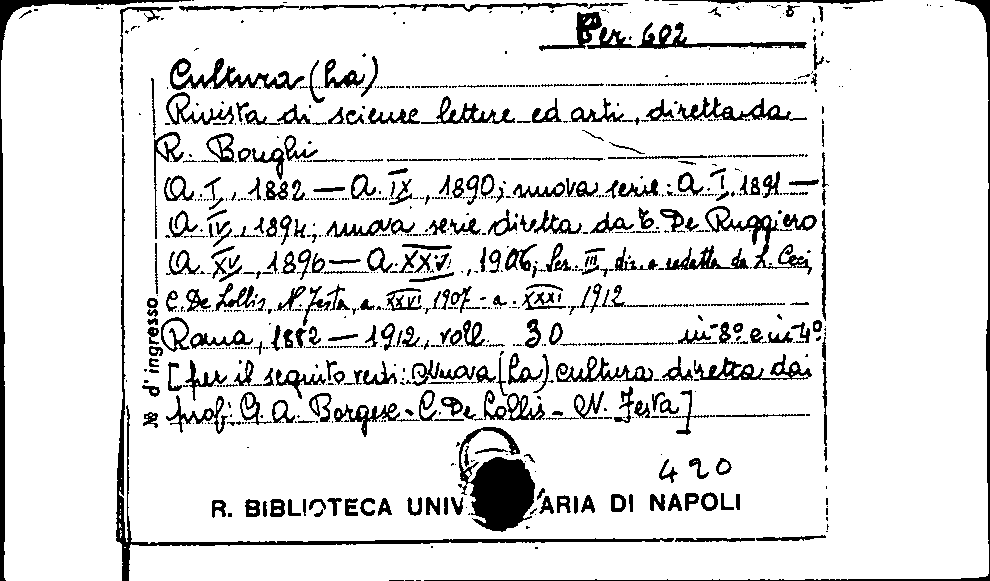 Per. 602
Cultura (La)
Rivista di scienze lettere ed arti, diretta da
R. Bonghi
A. I, 1882 — A. IX, 1890; nuova serie: A. I, 1891 —
A. IV, 1894; nuova serie diretta da E. De Ruggiero
A. XV, 1896 — A. XXV, 1906; Ser. III, dir. e redatta da L. Ceci,
C. De Lollis, N. Festa, a. XXVI, 1907 - a. XXXI, 1912
Roma, 1882 — 1912, voll. 30 in-8° e in-4°
[per il seguito vedi: Nuova (La) cultura diretta dai
prof. G. A. Borgese - C. De Lollis - N. Festa]
420
R. BIBLIOTECA UNIV ARIA DI NAPOLI
№ d'ingresso